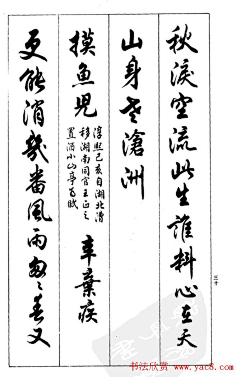 秋淚空流此生誰料心在天
山身老滄洲
摸魚兒
淳熙己亥自湖北漕
移湖南同官王正之
置酒小山亭為賦
辛棄疾
更能消幾番風雨匆〻春又
三十
书法欣赏
www.yac8.com